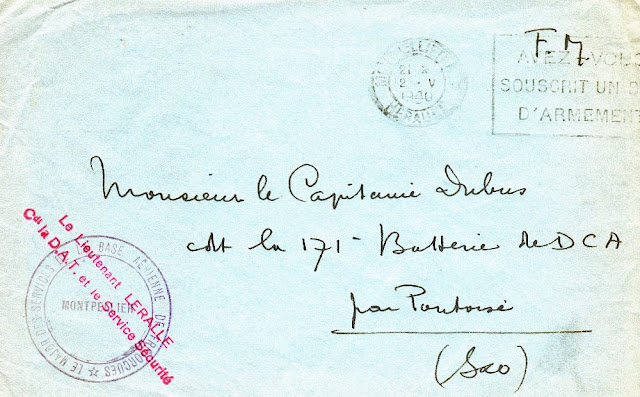 F M
MONTPELLIER
21 X
2 - V
1940
HERAULT
AVEZ-VOUS
SOUSCRIT UN
D'ARMEMENT
Monsieur le Capitaine Dubus
cdt la 171e Batterie de DCA
par Pontoise
(S&O)
Le Lieutenant LERALLE
Cdt la D.A.T. et le Service Sécurité
LE MAJOR DES SERVICES BASE AÉRIENNE DE
MONTPELLIER